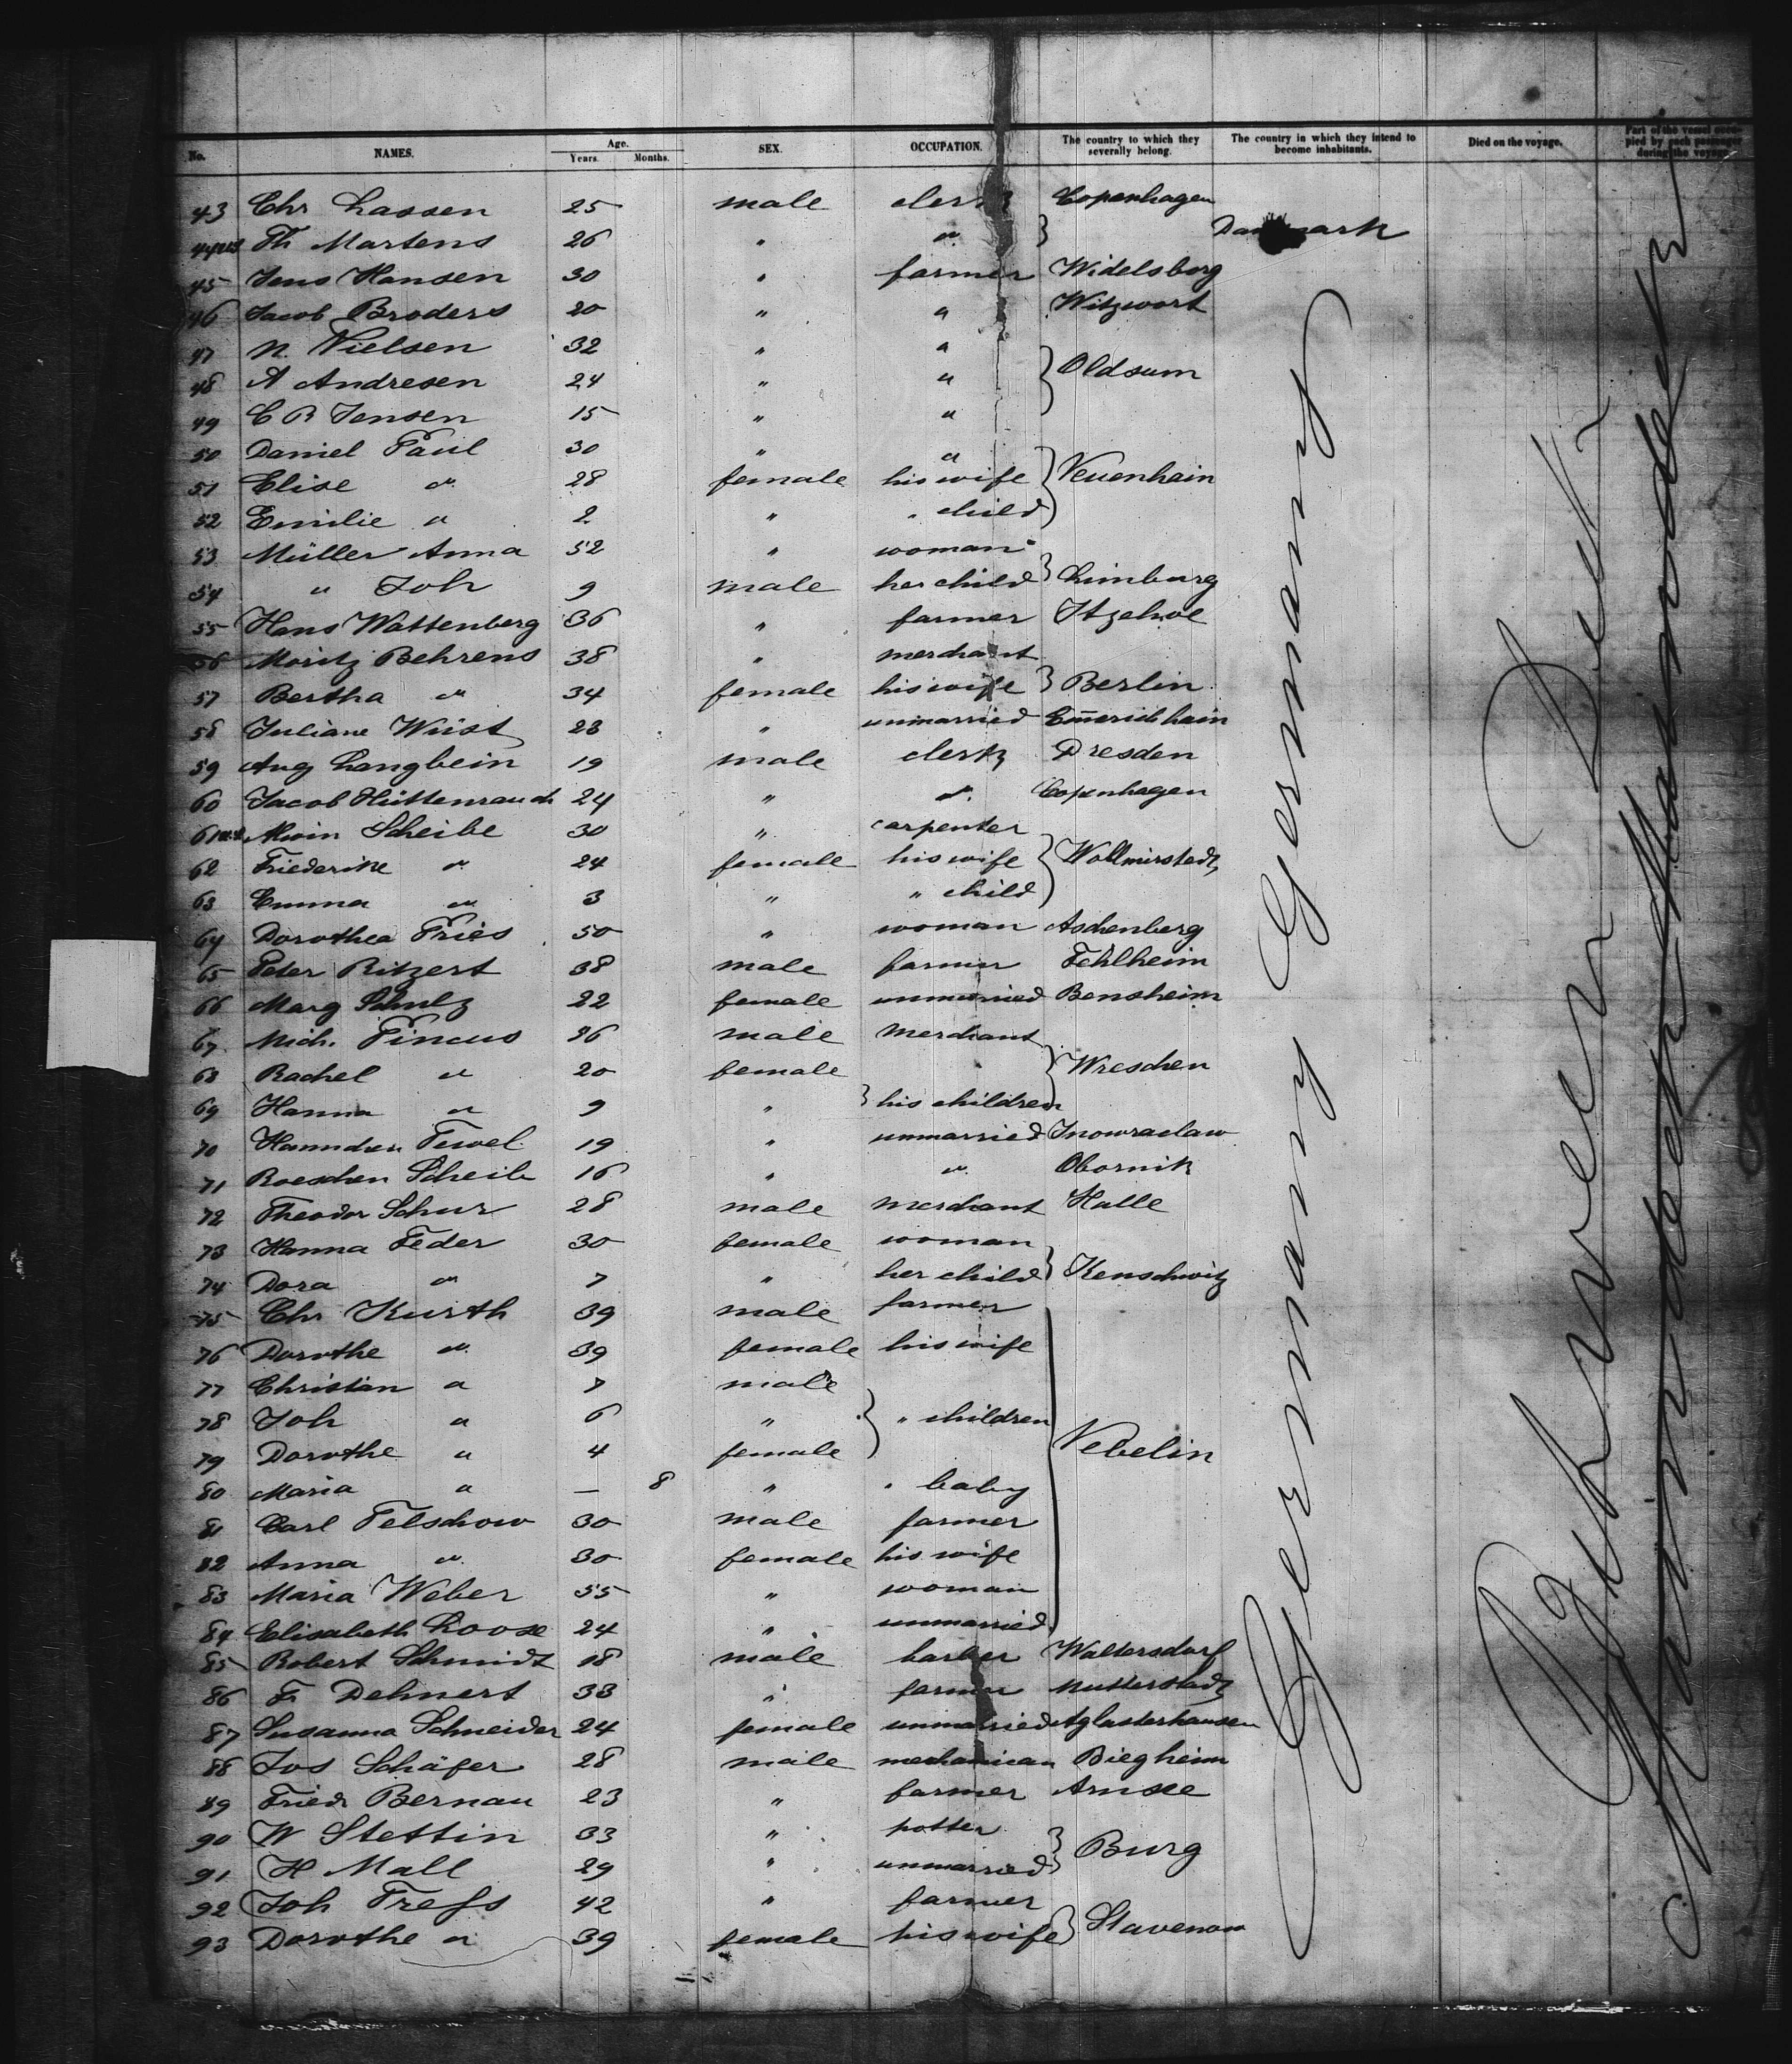 No. NAMES. Age. Years. Months. SEX. OCCUPATION. The country to which they severally belong. The country in which they intend to become inhabitants. Died on the voyage. Part of the vessel occupied by each passenger during the voyage.
43 Chr Lassen 25 male clerk Copenhagen
44 Th Martens 26 " " } Danemark
45 Jens Hansen 30 " farmer Widelsborg
46 Jacob Broders 20 " " Witzwort
47 N. Nielsen 32 " "
48 A Andresen 24 " " } Oldsum
49 C B Jensen 15 " "
50 Daniel Paul 30 " "
51 Elise " 28 female his wife } Neuenhain
52 Emilie " 2 " " child
53 Müller Anna 52 " woman
54 " Joh 9 male her child } Limburg
55 Hans Wattenberg 36 " farmer Itzehoe
56 Moritz Behrens 38 " merchant
57 Bertha " 34 female his wife } Berlin
58 Juliane Wüst 23 " unmarried Em̄erichhain
59 Aug Langbein 19 male clerk Dresden
60 Jacob Hüttenrauch 24 " " Copenhagen
61 Alwin Scheibe 30 " carpenter
62 Friederike " 24 female his wife } Wollmirstedt
63 Emma " 3 " " child
64 Dorothea Fries 50 " woman Aschenberg
65 Peter Ritzert 38 male farmer Fehlheim
66 Marg Schulz 22 female unmarried Bensheim
67 Mich. Pincus 36 male merchant
68 Rachel " 20 female } Wreschen
69 Hanna " 9 " } his children
70 Hannchen Tewel 19 " unmarried Inowraclaw
71 Roeschen Scheib 16 " " Obornik
72 Theodor Schur 28 male merchant Halle
73 Hanna Feder 30 female woman
74 Dora " 7 " her child } Kenschwitz
75 Chr Kurth 39 male farmer
76 Dorothe " 39 female his wife
77 Christian " 7 male
78 Joh " 6 " } " children
79 Dorothe " 4 female Nebelin
80 Maria " — 8 " " baby
81 Carl Telschow 30 male farmer
82 Anna " 30 female his wife
83 Maria Weber 55 " woman
84 Elisabeth Loose 24 " unmarried
85 Robert Schmidt 18 male barber Waltersdorf
86 F. Dehnert 33 " farmer Mutterstadt
87 Susanna Schneider 24 female unmarried Aglasterhausen
88 Jos Schäfer 28 male mechanican Biegheim
89 Friedr Bernau 23 " farmer Arnsee
90 W Stettin 33 " potter
91 H Mall 29 " unmarried } Burg
92 Joh Trefs 42 " farmer
93 Dorothe " 39 female his wife } Stavenow
Germany Germany
Zwischen Deck